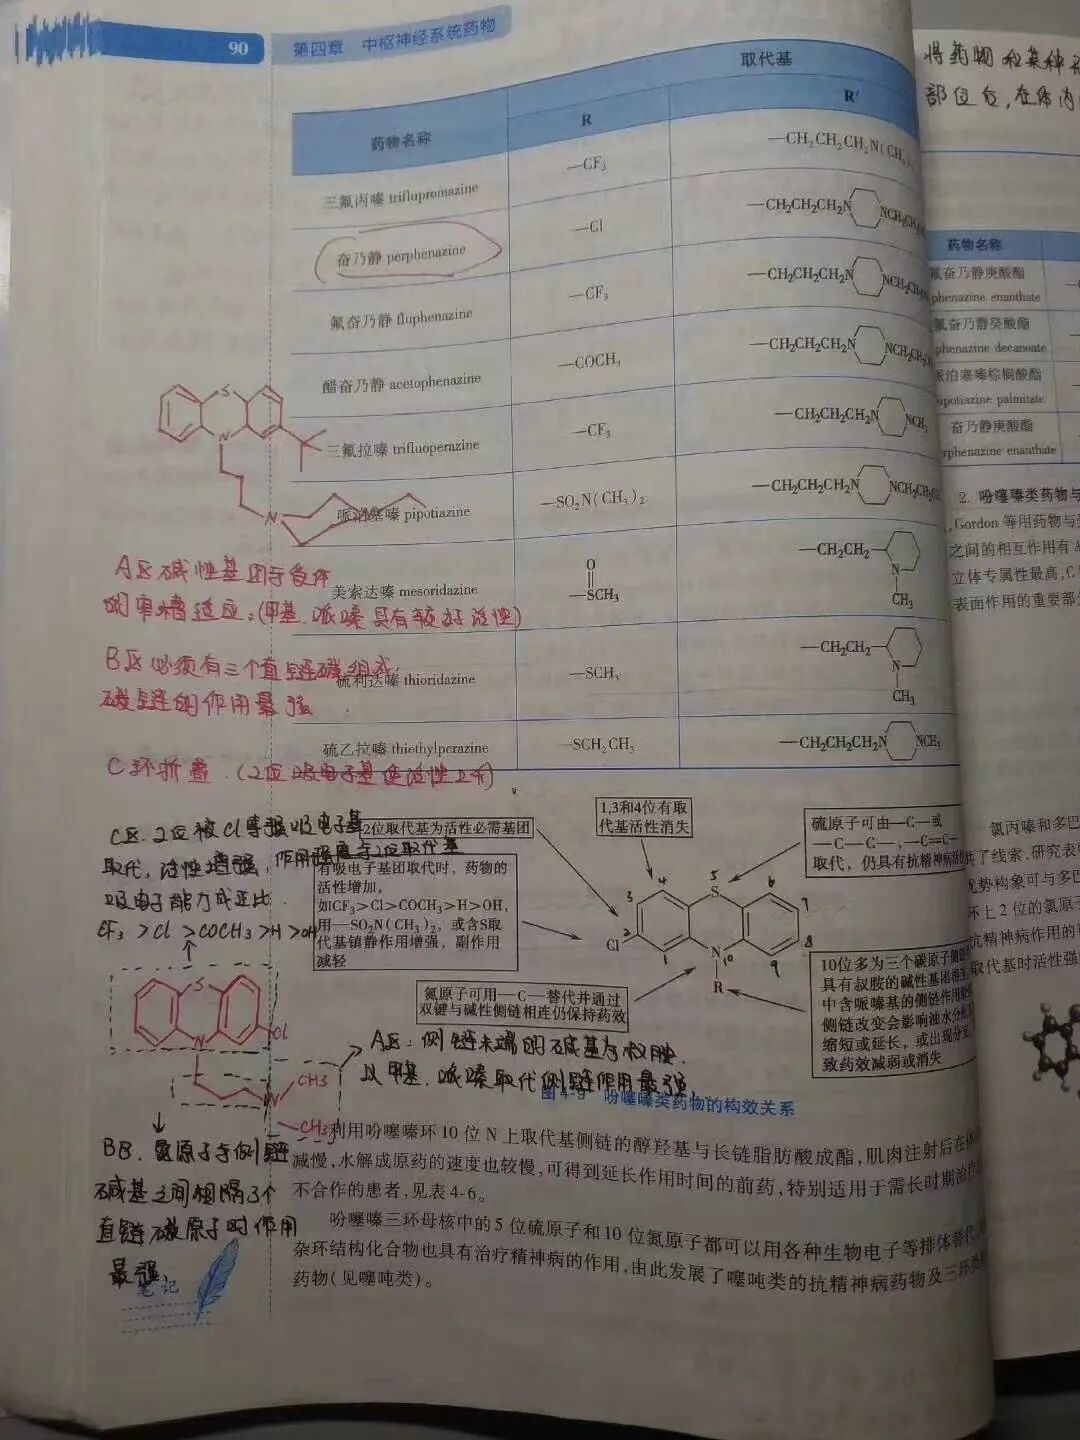 90
第四章 中枢神经系统药物
药物名称
取代基
R
R′
三氟丙嗪 triflupromazine
—CF₃
—CH₂CH₂CH₂N(CH₃
奋乃静 perphenazine
—Cl
—CH₂CH₂CH₂N NCH₂CH₂
氟奋乃静 fluphenazine
—CF₃
—CH₂CH₂CH₂N NCH₂CH₂
醋奋乃静 acetophenazine
—COCH₃
—CH₂CH₂CH₂N NCH₂CH₂
三氟拉嗪 trifluoperazine
—CF₃
—CH₂CH₂CH₂N NCH₃
哌泊塞嗪 pipotiazine
—SO₂N(CH₃)₂
—CH₂CH₂CH₂N NCH₂CH₂
美索达嗪 mesoridazine
O
—SCH₃
—CH₂CH₂—
N
CH₃
硫利达嗪 thioridazine
—SCH₃
—CH₂CH₂—
N
CH₃
硫乙拉嗪 thiethylperazine
—SCH₂CH₃
—CH₂CH₂CH₂N NCH₃
S
N
N
A区碱性基团与受体
适应:(甲基、哌嗪具有较好活性)
B区必须有三个直链碳组成
碳链的作用最强
C环折叠.(2位吸电子基使活性上升)
C区.2位被Cl等强吸电子基
取代,活性增强,作用强度与2位取代基
吸电子能力成正比.
CF₃ >Cl >COCH₃ >H >OH
S
N
Cl
N
CH₃
CH₃
A区:侧链末端的碱基为叔胺.
以甲基、哌嗪取代侧链作用最强.
B区.氮原子与侧链
碱基之间相隔3个
直链碳原子时作用
最强
笔记
2位取代基为活性必需基团
有吸电子基团取代时,药物的
活性增加,
如CF₃>Cl>COCH₃>H>OH,
用—SO₂N(CH₃)₂,或含S取
代基镇静作用增强,副作用
减轻
1,3和4位有取
代基活性消失
硫原子可由—C—或
—C—C—,—C=C—
取代,仍具有抗精神病
氮原子可用—C—替代并通过
双键与碱性侧链相连仍保持药效
10位多为三个碳原子侧链
具有叔胺的碱性基团
中含哌嗪基的侧链作用
侧链改变会影响油水分
缩短或延长,或出现分
致药效减弱或消失
Cl
S
N
R
1
2
3
4
5
6
7
8
9
10
图4-9 吩噻嗪类药物的构效关系
利用吩噻嗪环10位N上取代基侧链的醇羟基与长链脂肪酸成酯,肌肉注射后在体
减慢,水解成原药的速度也较慢,可得到延长作用时间的前药,特别适用于需长时期治疗
不合作的患者,见表4-6。
吩噻嗪三环母核中的5位硫原子和10位氮原子都可以用各种生物电子等排体替代,
杂环结构化合物也具有治疗精神病的作用,由此发展了噻吨类的抗精神病药物及三环类
药物(见噻吨类)。
将药物和某种
部位后,在体内
药物名称
氟奋乃静庚酸酯
phenazine enanthate
氟奋乃静癸酸酯
phenazine decanoate
哌泊塞嗪棕榈酸酯
pipotiazine palmitate
奋乃静庚酸酯
rphenazine enanthate
2. 吩噻嗪类药物与
Gordon 等用药物与
之间的相互作用有
立体专属性最高,C
表面作用的重要部
氯丙嗪和多巴
供了线索,研究表
优势构象可与多巴
环上2位的氯原子
抗精神病作用的
取代基时活性强